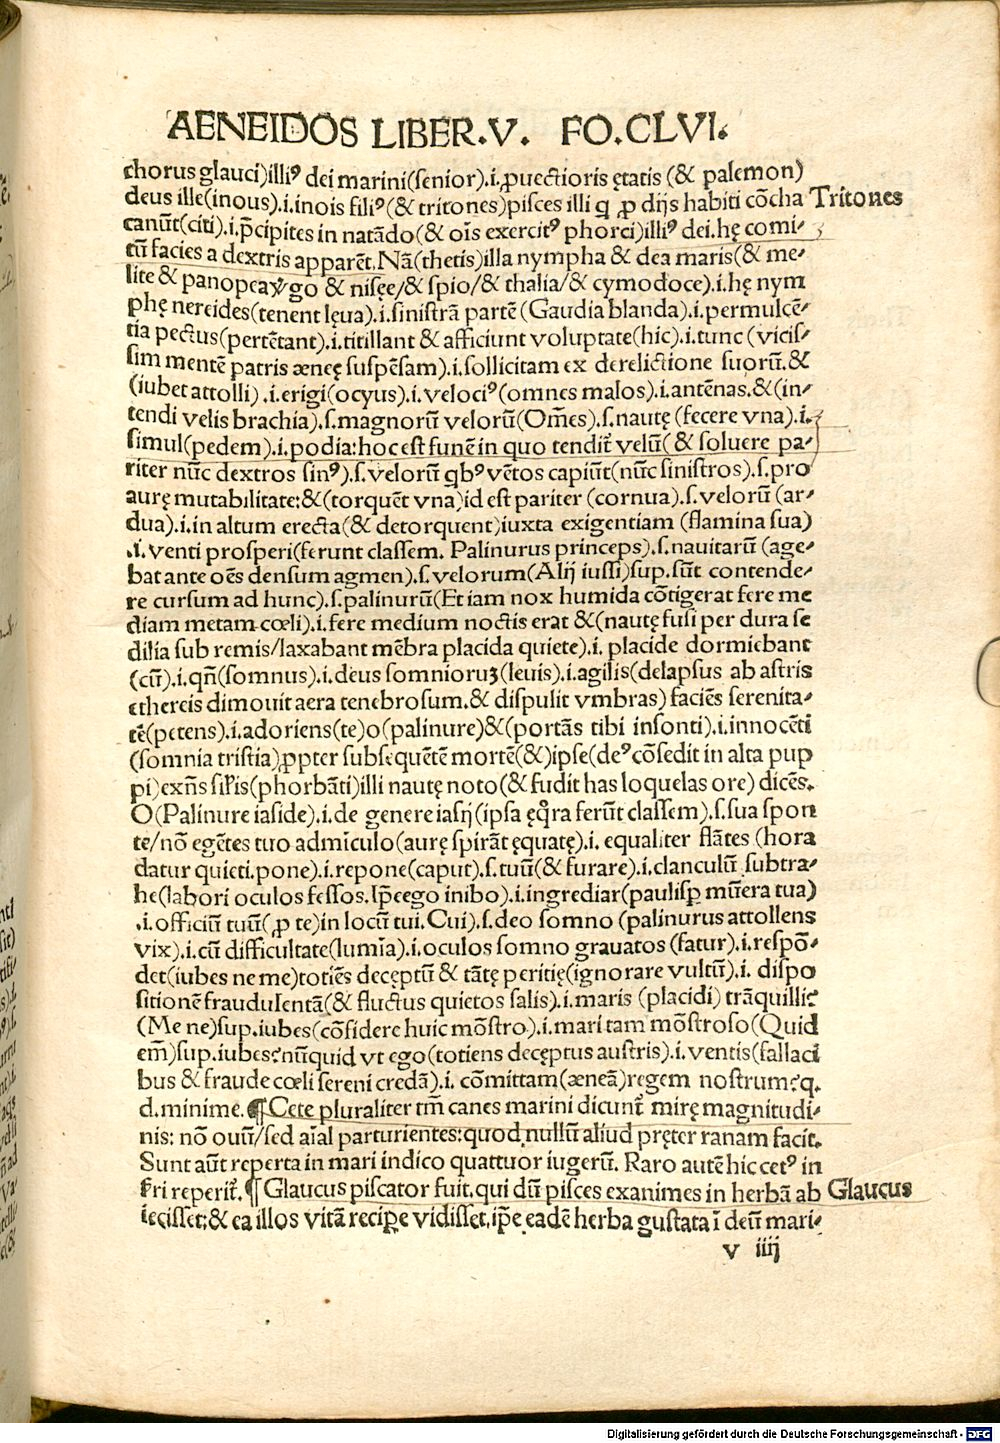 AENEIDOS LIBER.V. FO.CLVI.
chorus glauci)illiꝰ dei marini(senior).i.ꝓuectioris ętatis (& palemon)
deus ille(inous).i.inois filiꝰ(& tritones)pisces illi q ꝓ dijs habiti cõcha Tritones
canũt(citi).i.p̃cipites in natãdo(& oĩs exercitꝰ phorci)illiꝰ dei.hę comi⸗
tũ facies a dextris apparẽt.Nã(thetis)illa nympha & dea maris(& me⸗
lite & panopeaꝟgo & nisęe/& spio/& thalia/& cymodoce).i.hę nym
phę nereides(tenent lęua).i.sinistrã partẽ (Gaudia blanda).i.permulcẽ⸗
tia pectus(pertẽtant).i.titillant & afficiunt voluptate(hic).i.tunc (vicis⸗
sim mentẽ patris æneę suspẽsam).i.sollicitam ex derelictione suorũ.&
(iubet attolli).i.erigi(ocyus).i.velociꝰ(omnes malos).i.antẽnas.&(in⸗
tendi velis brachia).s.magnorũ velorũ(Om̃es).s.nautę (fecere vna).i.
simul(pedem).i.podia:hoc est funẽ in quo tendit᷑ velũ(& soluere pa⸗
riter nũc dextros sinꝰ).s.velorũ qbꝰ vẽtos capiũt(nũc sinistros).s.pro
aurę mutabilitate:&(torquẽt vna)id est pariter (cornua).s.velorũ (ar⸗
dua).i.in altum erecta(& detorquent)iuxta exigentiam (flamina sua)
.i.venti prosperi(ferunt classem. Palinurus princeps).s.nauitarũ (age⸗
bat ante oẽs densum agmen).s.velorum(Alij iussi)sup.sũt contende⸗
re cursum ad hunc).s.palinurũ(Et iam nox humida cõtigerat fere me
diam metam cœli).i.fere medium noctis erat &(nautę fusi per dura se
dilia sub remis/laxabant mẽbra placida quiete).i. placide dormiebant
(cũ).i.qñ(somnus).i.deus somnioruꝫ(leuis).i.agilis(delapsus ab astris
ethereis dimouit aera tenebrosum.& dispulit vmbras) faciẽs serenita⸗
tẽ(petens).i.adoriens(te)o(palinure)&(portãs tibi insonti).i.innocẽti
(somnia tristia)ꝓpter subsequẽtẽ mortẽ(&)ipse(deꝰ cõsedit in alta pup
pi)exñs sil̃is(phorbãti)illi nautę noto(& fudit has loquelas ore) dicẽs.
O(Palinure iaside).i.de genere iasij(ipsa ęq̃ra ferũt classem).s.sua spon
te/nõ egẽtes tuo admiculo(aurę spirãt ęquatę).i. equaliter flãtes (hora
datur quieti.pone).i.repone(caput).s.tuũ(& furare).i.clanculũ subtra⸗
he(labori oculos fessos.Ip̃e ego inibo).i.ingrediar(paulisꝑ mũera tua)
.i.officiũ tuũ(ꝓ te)in locũ tui.Cui).s.deo somno (palinurus attollens
vix).i.cũ difficultate(lumĩa).i.oculos somno grauatos (fatur).i.respõ⸗
det(iubes ne me)totiẽs decęptũ & tãtę peritię(ignorare vultũ).i. dispo
sitionẽ fraudulentã(& fluctus quietos salis).i.maris (placidi) trãquilli?
(Me ne)sup.iubes(cõfidere huic mõstro).i.mari tam mõstroso(Quid
em̃)sup.iubes?nũquid vt ego(totiens decęptus austris).i.ventis(fallaci
bus & fraude cœli sereni credã).i. cõmittam(æneã)regem nostrum?q.
d.minime.¶Cete pluraliter tm̃ canes marini dicunt᷑ mirę magnitudi⸗
nis: nõ ouũ/sed aĩal parturientes:quod nullũ aliud pręter ranam facit.
Sunt aũt reperta in mari indico quattuor iugerũ. Raro autẽ hic cetꝰ in
fri reperit᷑.¶Glaucus piscator fuit.qui dũ pisces exanimes in herbã ab Glaucus
iecisset:& ea illos vitã recipe vidisset.ip̃e eadẽ herba gustata ĩ deũ mari⸗
v iiij
Digitalisierung gefördert durch die Deutsche Forschungsgemeinschaft - DFG